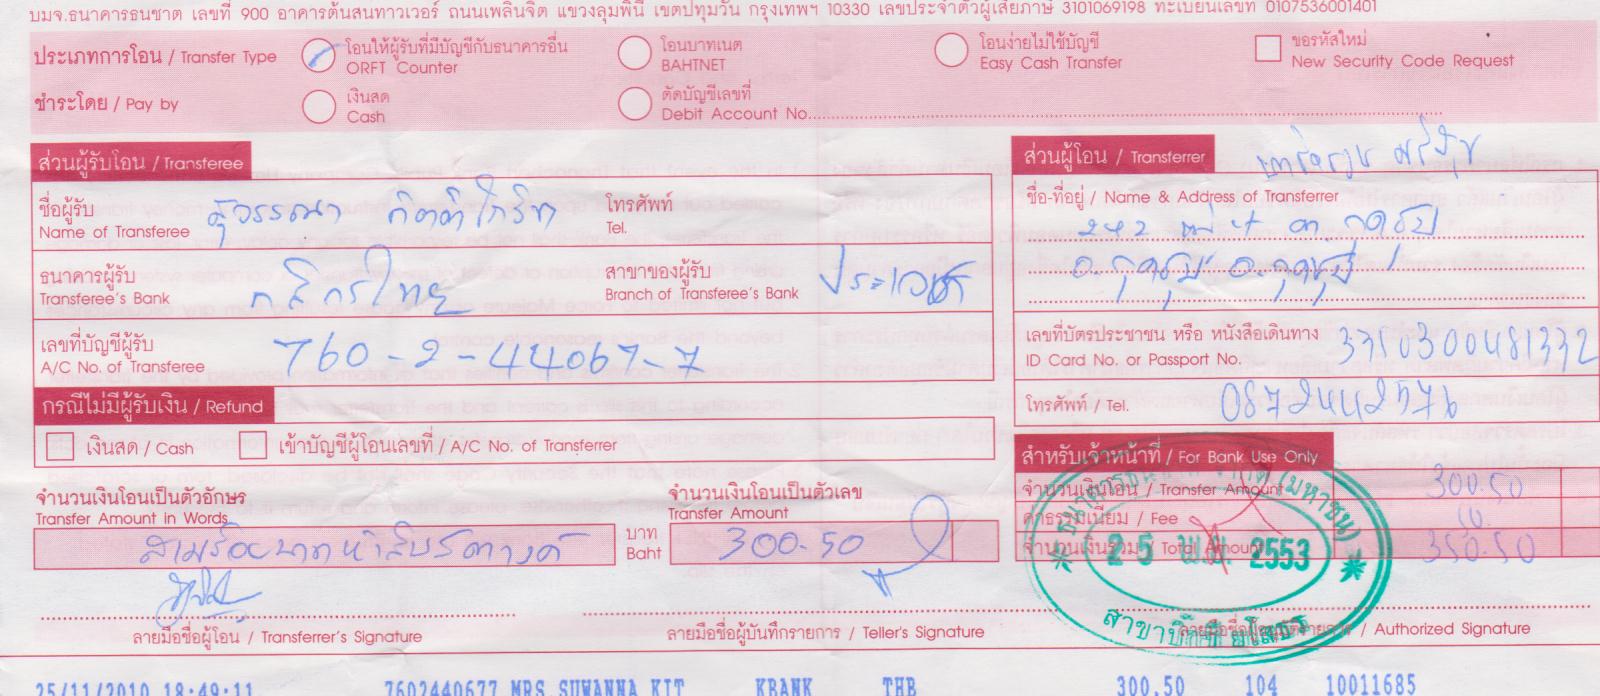 บมจ.ธนาคารธนชาต เลขที่ 900 อาคารต้นสนทาวเวอร์ ถนนเพลินจิต แขวงลุมพินี เขตปทุมวัน กรุงเทพฯ 10330 เลขประจำตัวผู้เสียภาษี 3101069198 ทะเบียนเลขที่ 0107536001401
ประเภทการโอน / Transfer Type
โอนให้ผู้รับที่มีบัญชีกับธนาคารอื่น
ORFT Counter
โอนบาทเนต
BAHTNET
โอนง่ายไม่ใช้บัญชี
Easy Cash Transfer
ขอรหัสใหม่
New Security Code Request
ชำระโดย / Pay by
เงินสด
Cash
ตัดบัญชีเลขที่
Debit Account No.
ส่วนผู้รับโอน / Transferee
ชื่อผู้รับ
Name of Transferee
สุวรรณา
โทรศัพท์
Tel.
ธนาคารผู้รับ
Transferee's Bank
กสิกรไทย
สาขาของผู้รับ
Branch of Transferee's Bank
เลขที่บัญชีผู้รับ
A/C No. of Transferee
760-2-44067-7
กรณีไม่มีผู้รับเงิน / Refund
เงินสด / Cash
เข้าบัญชีผู้โอนเลขที่ / A/C No. of Transferrer
จำนวนเงินโอนเป็นตัวอักษร
Transfer Amount in Words
สามร้อยบาทห้าสิบสตางค์
บาท
Baht
จำนวนเงินโอนเป็นตัวเลข
Transfer Amount
300.50
ส่วนผู้โอน / Transferrer
ชื่อ-ที่อยู่ / Name & Address of Transferrer
242 หมู่ 4 ต. กุดชุม
อ. กุดชุม
เลขที่บัตรประชาชน หรือ หนังสือเดินทาง
ID Card No. or Passport No.
3350300481332
โทรศัพท์ / Tel.
0872442576
สำหรับเจ้าหน้าที่ / For Bank Use Only
จำนวนเงินโอน / Transfer Amount
300.50
ค่าธรรมเนียม / Fee
จำนวนเงินรวม / Total Amount
350.50
(มหาชน)
25 พ.ย. 2553
ลายมือชื่อผู้โอน / Transferrer's Signature
ลายมือชื่อผู้บันทึกรายการ / Teller's Signature
/ Authorized Signature
25/11/2010 18:49:11 7602440677 MRS SUWANNA KIT KBANK THB 300.50 104 10011685